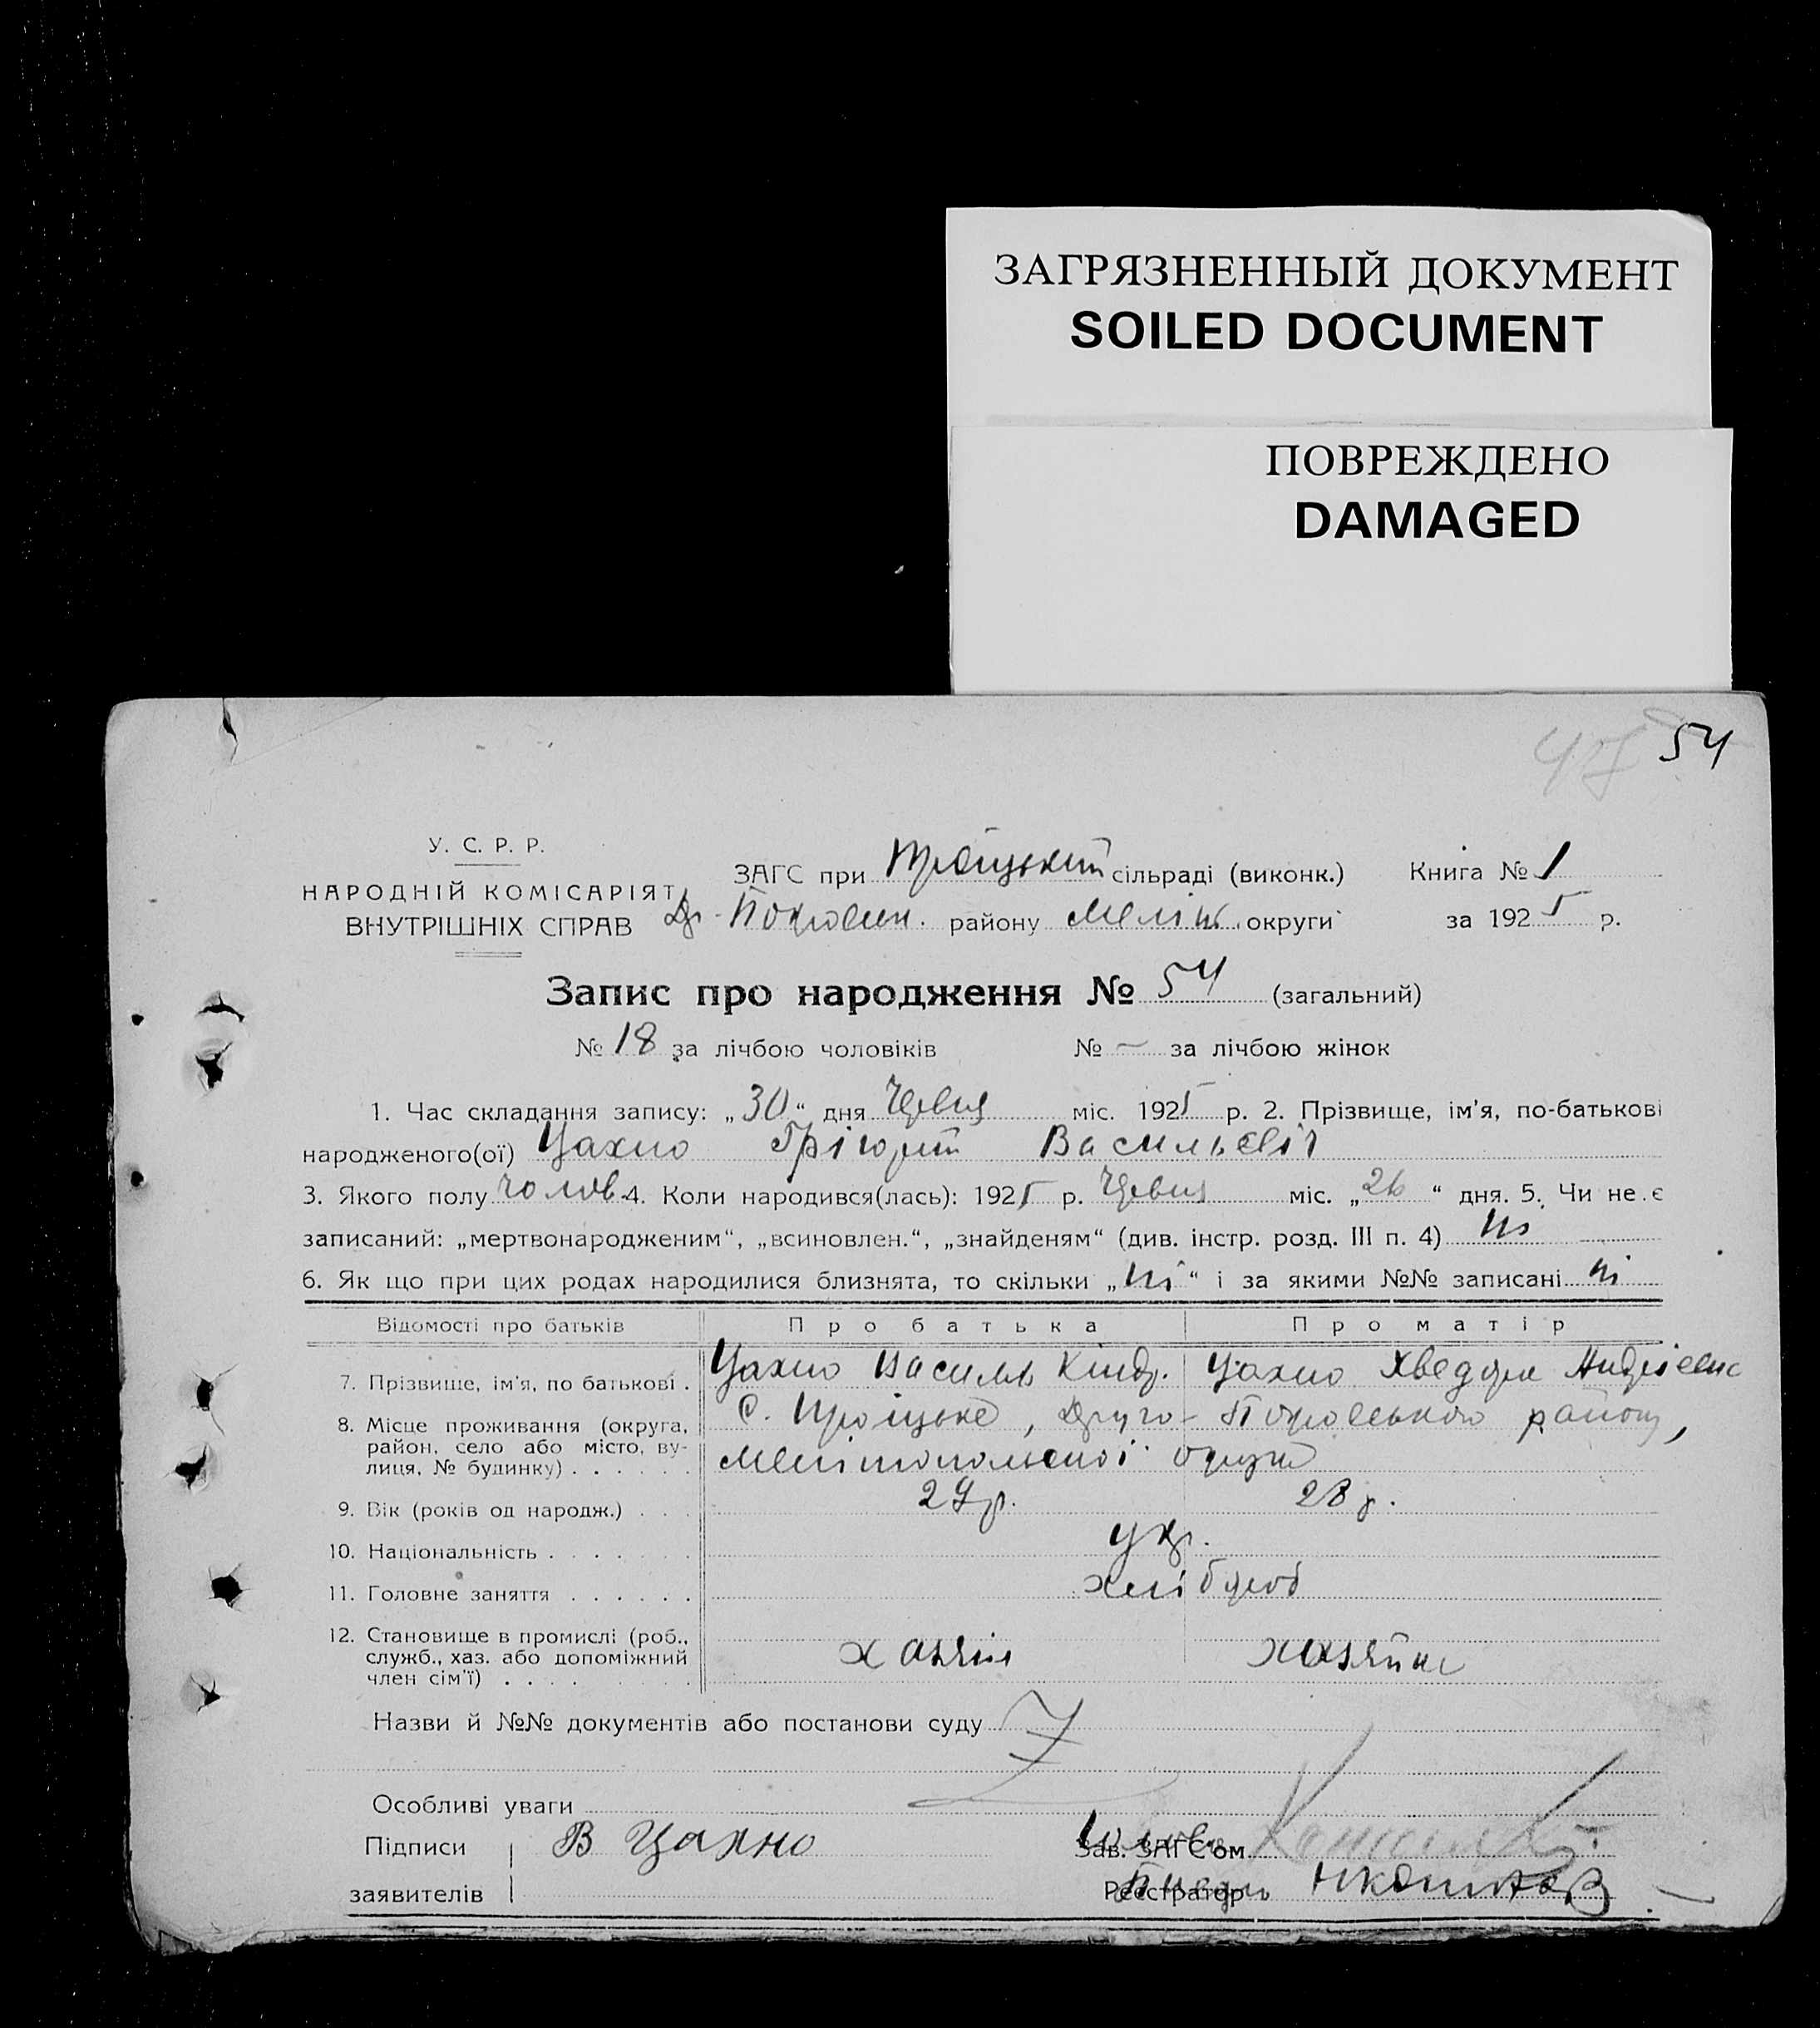 ЗАГРЯЗНЕННЫЙ ДОКУМЕНТ
SOILED DOCUMENT
ПОВРЕЖДЕНО
DAMAGED
54
У. С. Р. Р.
НАРОДНІЙ КОМІСАРІЯТ
ВНУТРІШНІХ СПРАВ
ЗАГС при Троіцькій сільраді (виконк.) Книга № 1
Др-Покровск. району Меліт. округи за 1925 р.
Запис про народження № 54 (загальний)
№ 18 за лічбою чоловіків № — за лічбою жінок
1. Час складання запису: „30“ дня Червня міс. 1925 р. 2. Прізвище, ім'я, по-батькові
народженого(ої) Цахно Грігорій Васильєвіч
3. Якого полу чолов. 4. Коли народився(лась): 1925 р. Червня міс. „26“ дня. 5. Чи не є
записаний: „мертвонародженим“, „всиновлен.“, „знайденям“ (див. інстр. розд. III п. 4) ні
6. Як що при цих родах народилися близнята, то скільки „ні“ і за якими №№ записані ні
Відомості про батьків Про батька Про матір
7. Прізвище, ім'я, по батькові . Цахно Василь Кіндр. Цахно Хведора Андрієвна
8. Місце проживання (округа, с. Троіцьке, Друго-Покровського району,
район, село або місто, ву- Мелітопольської округи
лиця, № будинку) . . . . . .
9. Вік (років од народж.) . . . 29р. 28р.
10. Національність . . . . . . . укр.
11. Головне заняття . . . . . . хлібороб
12. Становище в промислі (роб.,
служб., хаз. або допоміжний хазяін хазяйка
член сім'ї) . . . . . . . .
Назви й №№ документів або постанови суду
Особливі уваги
Підписи В Цахно Зав. ЗАГС'ом
заявителів Реєстратор